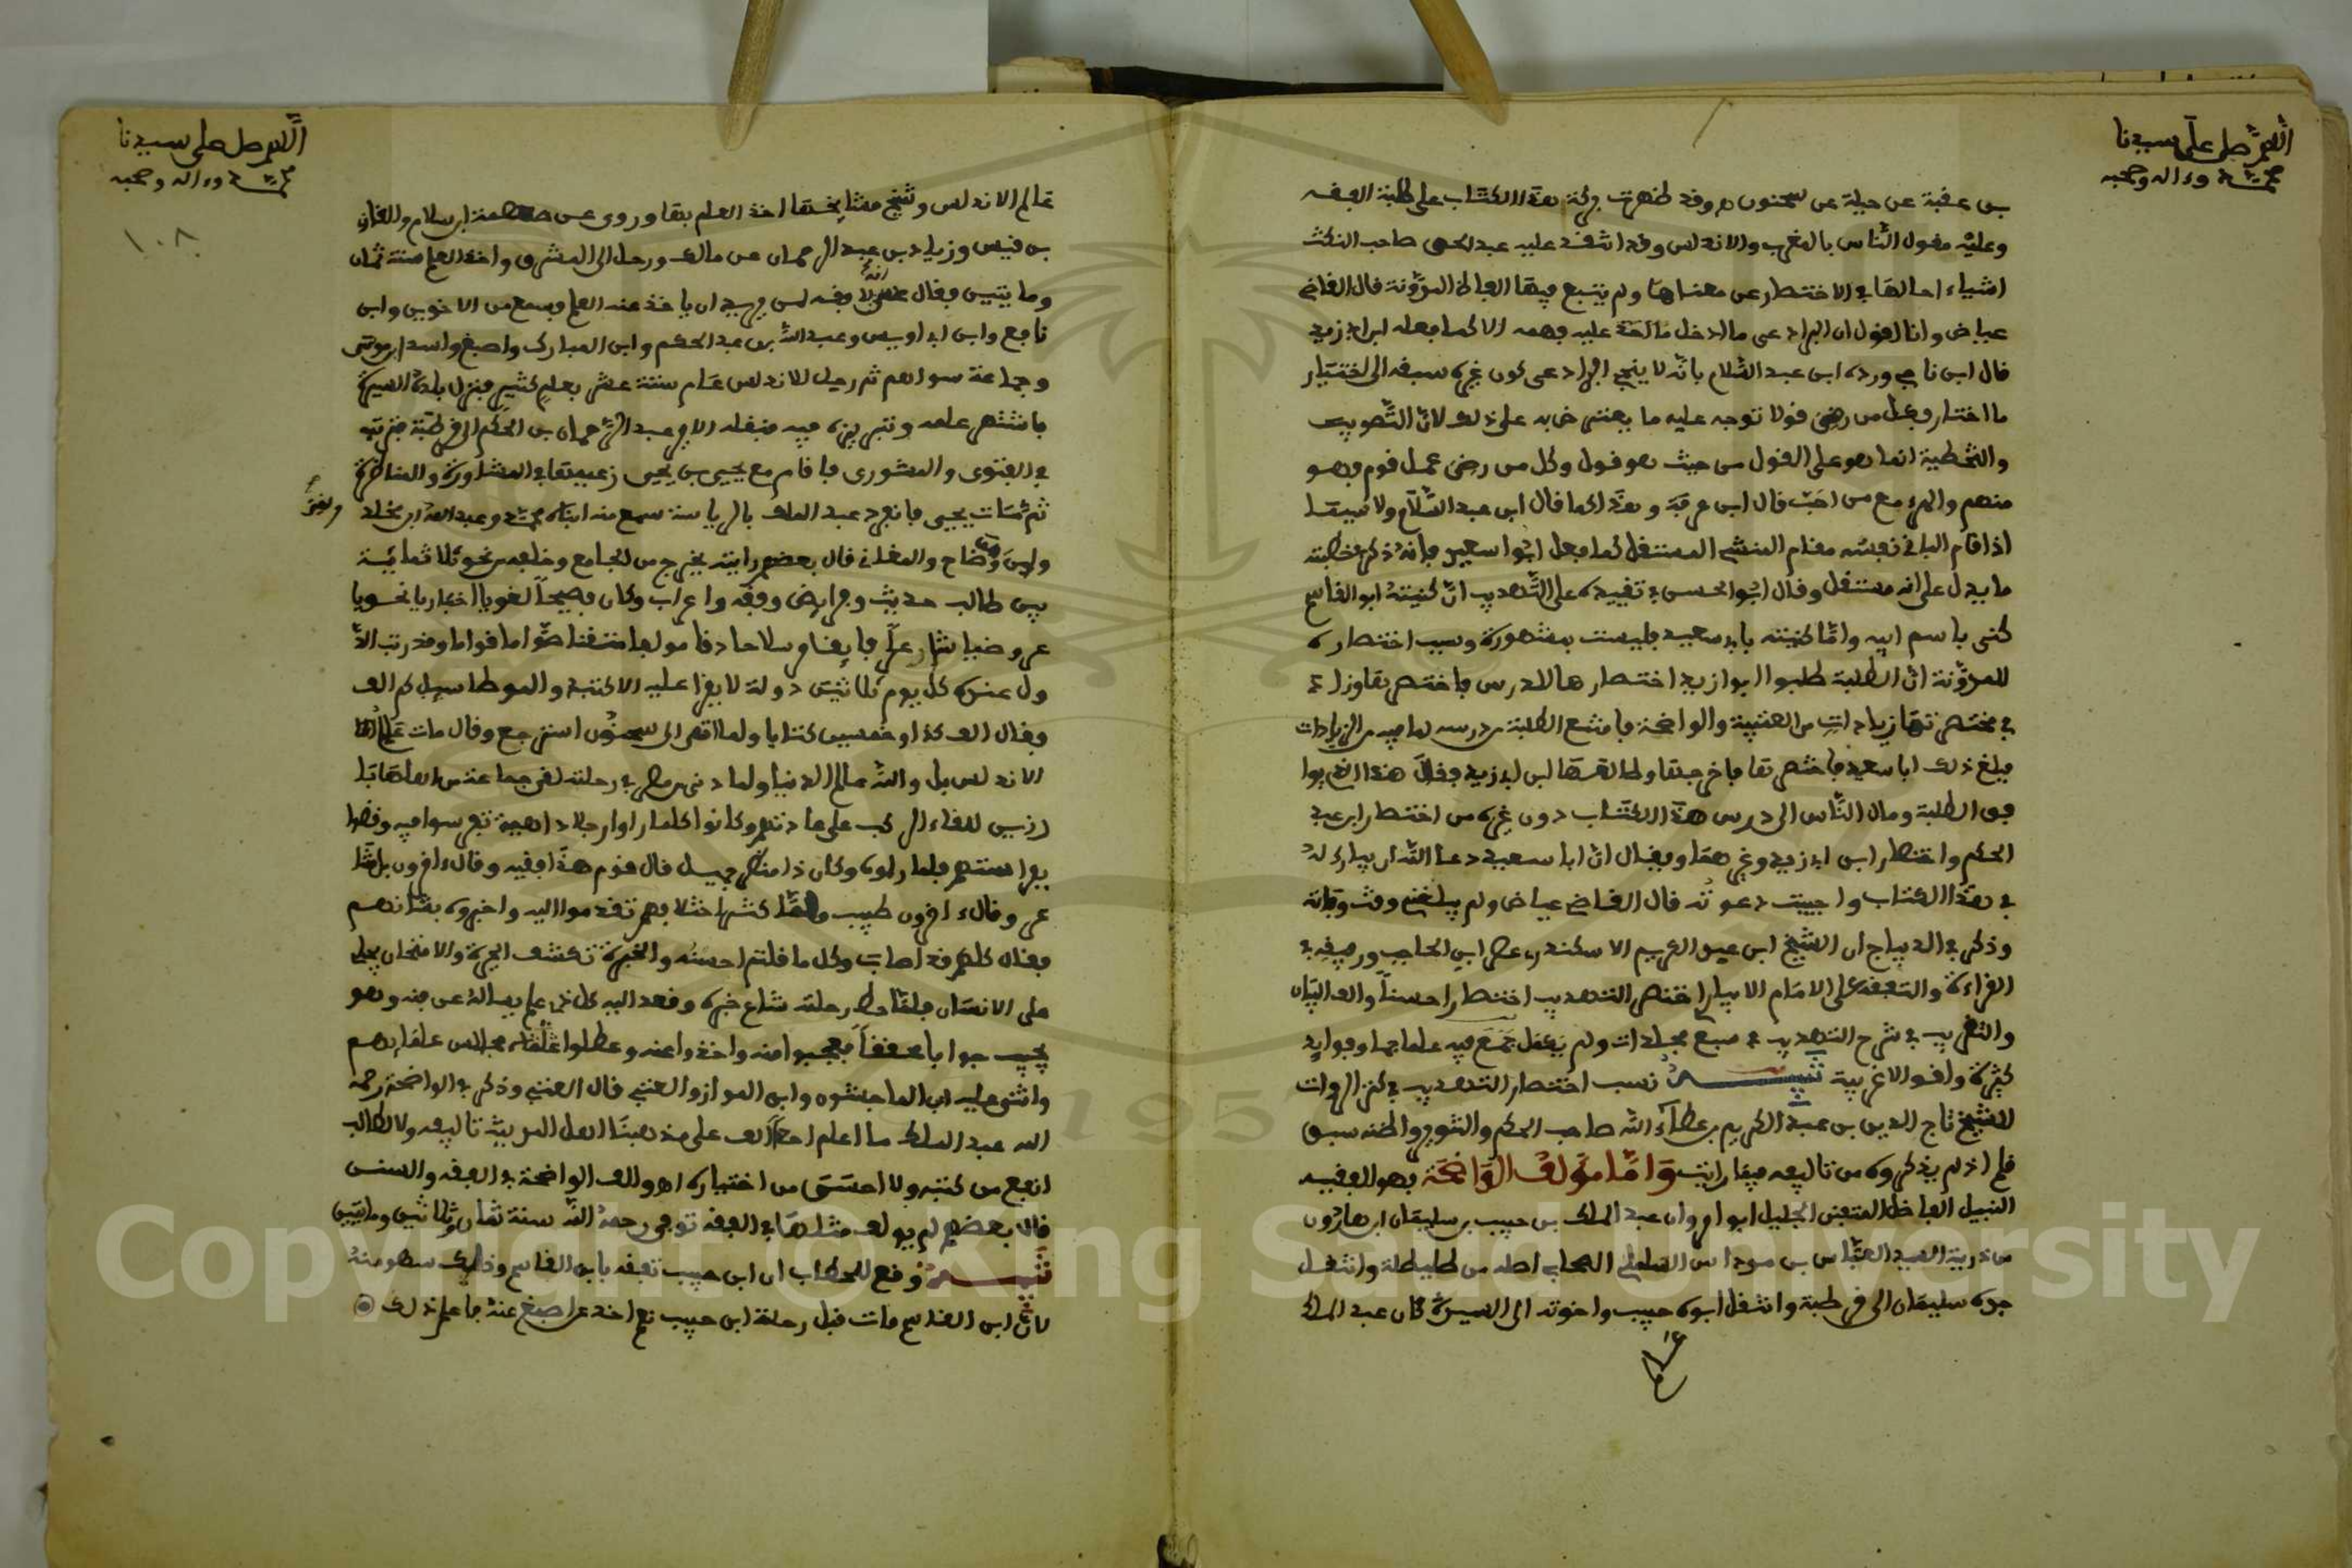 اللهم صل على سيدنا
محمد وءاله وصحبه
بن عقبة عن جبلة عن سحنون وقد ظهرت بركة هذا الكتاب على طلبة الفقه
وعليه معول الناس بالمغرب والاندلس وقد انتقد عليه عبد الحق صاحب النكت
اشياء احالها في الاختصار عن معناها ولم يتبع فيها الفاظ المدونة قال القاضي
عياض وانا اقول ان البراذعي ما ادخل ما اخذ عليه فيه الا كما فعله ابن ابي زيد
قال ابن ناجي ورده ابن عبد السلام بانه لا ينجي البراذعي كون غيره سبقه الى اختيار
ما اختار وفعل من رضي قولا توجه عليه ما يعترض به على ذلك لان التصويب
والتخطية انما هو على القول من حيث هو قول وكل من رضي عمل قوم فهو
منهم والمرء مع من احب قال ابن عرفة وهذا كما قال ابن عبد السلام ولا سيما
اذا اقام الباني نفسه مقام المنشئ المستقل كما فعل ابو سعيد فانه ذكر في خطبته
ما يدل على انه مستقل وقال ابو الحسن في تقييده على التهذيب ان كنيته ابو القاسم
كنى باسم ابيه واما كنيته بابي سعيد فليست بمشهورة وسبب اختصاره
للمدونة ان الطلبة طلبوا ابا زيد اختصارها للدرس فاختصرها وزاد
في مختصرتها زيادات من العتبية والواضحة فامتنع الطلبة من درسه لما فيه من الزيادات
فبلغ ذلك ابا سعيد فاختصرها فاخرجها ولما القيها ابن ابي زيد فقال هذا الذي يوا
فق الطلبة ومال الناس الى درس هذا الكتاب دون غيره من اختصار ابن عبد
الحكم واختصار ابن ابي زيد وغيرهما ويقال ان ابا سعيد دعا الله ان يبارك له
في هذا الكتاب واجيبت دعوته قال القاضي عياض ولم يبلغني وقت وفاته
وذكر في الديباج ان الشيخ ابن عبد الكريم الاسكندري عصري ابن الحاجب ورفيقه في
القراءة والتفقه على الامام الابياري اختصر التهذيب اختصارا حسنا والف البيان
والتقريب في شرح التهذيب في سبع مجلدات ولم يكمل جمع فيه علما جما وفوايد
كثيرة واقوالا غريبة تنبيه نسب اختصار التهذيب في كنز الرواة
للشيخ تاج الدين بن عبد الكريم بن عطاء الله صاحب الحكم والتنوير واظنه سبق
قلم اذ لم يذكروه من تاليفه فيما رايت واما مولف الواضحة فهو الفقيه
النبيل الفاضل المتفنن الجليل ابو مروان عبد الملك بن حبيب بن سليمان بن هارون
من ذرية السيد العباس بن مرداس السلمي الصحابي اصله من طليطلة وانتقل
جده سليمان الى قرطبة وانتقل ابوه حبيب واخوته الى البيرة كان عبد الملك
عالم
اللهم صل على سيدنا
محمد وءاله وصحبه
١٠٨
عالم الاندلس وشيخ مشايخها اخذ العلم بها وروى عن صعصعة ابن سلام والغازي
بن قيس وزياد بن عبد الرحمان عن مالك ورحل الى المشرق واخذ العلم سنة ثمان
وما يتين فقال انه لا فيه لمن يريد ان ياخذ عنه العلم وسمع من الاخوين وابن
نافع وابن ابي اويس وعبد الله بن عبد الحكم وابن المبارك واصبغ واسد ابن موسى
وجماعة سواهم ثم رحل للاندلس عام ستة عشر بعلم كثير فنزل بلدة البيرة
فانتشر علمه وتبريزه فيه فنقله الامير عبد الرحمان بن الحكم الى قرطبة فرتبه
في الفتوى والشورى فاقام مع يحيى بن يحيى زعيميها في المشاورة والمناظرة
ثم مات يحيى فانفرد عبد الملك بالرياسة سمع منه ابناه محمد وعبد الله وابن مخلد
وبقي
وابن وضاح والمغامي قال بعضهم رايته يخرج من الجامع وخلفه نحو ثلاثماية
بين طالب حديث وفرايض وفقه واعراب وكان فصيحا لغويا اخباريا نحويا
عروضيا شاعرا صواما قواما وقد رتب الا
ول عنده كل يوم ثلاثين دولة لا يقرا عليه الا كتبه والموطا سيل كم الف
فقال الف كذا وخمسين كتابا ولما نعي الى سحنون استرجع وقال مات عالم
الاندلس بل والله عالم الدنيا ولما دنى من مصر في رحلته لقي جماعة من اهلها با
رزين للقاء الركب على عادتهم وكانوا كلما راوا رجلا ذا هيبة تفرسوا فيه وقضوا
بفراستهم فلما راوه وكان ذا منظر جميل قال قوم هذا فقيه وقال ءاخرون بل شا
عر وقال ءاخرون طبيب ولما كثر اختلافهم تقدموا اليه واخبروه بشانهم
فقال كلهم قد اصاب وكل ما قلتم احسنه والخبرة تكشف الحيرة والامتحان يجلي
على الانسان فلما حط رحلته شاع خبره وقعد اليه كل ذي علم يساله عن فنه وهو
يجيب جوابا محققا فعجبوا منه واخذوا عنه وعطلوا مجالس علمايهم
واثنى عليه ابن الماجشون وابن المواز والعتبي قال العتبي وذكر في الواضحة رحم
الله عبد الملك ما اعلم احدا الف على مذهبنا اهل المدينة تاليفه ولا لطالب
انفع من كتبه ولا احسن من اختياره اه والف الواضحة في الفقه والسنن
قال بعضهم لم يولف مثلها في الفقه توفي رحمه الله سنة ثمان وثلاثين ومايتين
تنبيه وقع للحطاب ان ابن حبيب تفقه بابن القاسم وذلك سهو منه
لان ابن القاسم مات قبل رحلة ابن حبيب نعم اخذ عن اصبغ عنه فاعلم ذلك
Copyright © King Saud University
1957